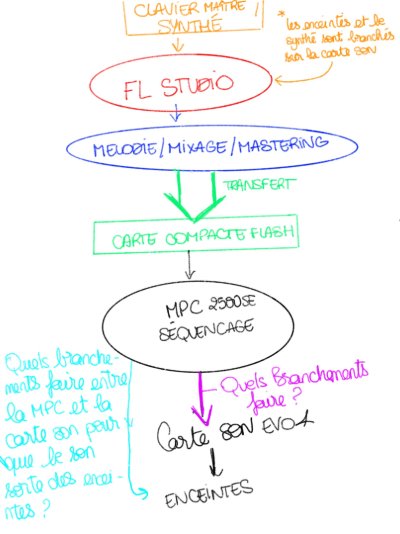 CLAVIER MAÎTRE /
SYNTHÉ
* les enceintes et le
synthé sont branchés
sur la carte son
FL STUDIO
MELODIE/MIXAGE/MASTERING
TRANSFERT
CARTE COMPACTE FLASH
MPC 2500SE
SÉQUENCAGE
Quels branche-
ments faire entre
la MPC et la
carte son pour
que le son
sorte des encei-
ntes ?
Quels Branchements
faire ?
Carte SON EVO4
ENCEINTES